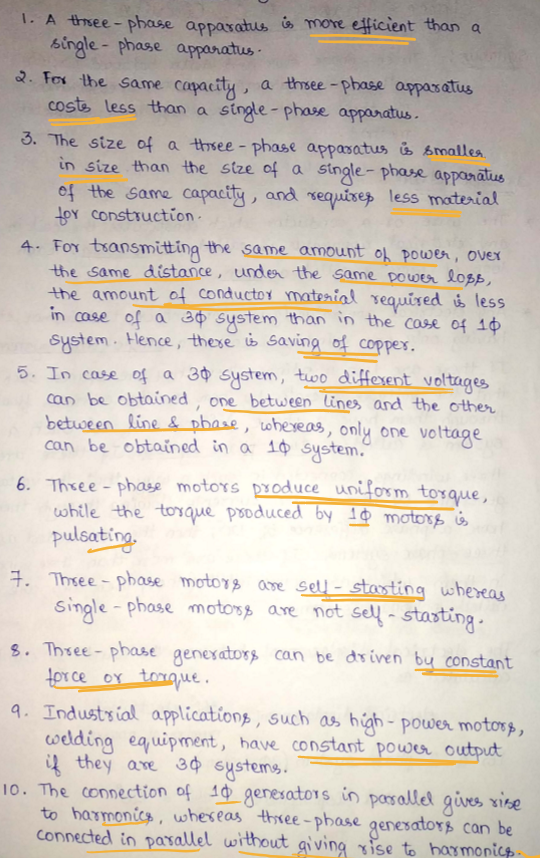 1. A three-phase apparatus is more efficient than a
single-phase apparatus.
2. For the same capacity, a three-phase apparatus
costs less than a single-phase apparatus.
3. The size of a three-phase apparatus is smaller
in size than the size of a single-phase apparatus
of the same capacity, and requires less material
for construction.
4. For transmitting the same amount of power, over
the same distance, under the same power loss,
the amount of conductor material required is less
in case of a 3Φ system than in the case of 1Φ
system. Hence, there is saving of copper.
5. In case of a 3Φ system, two different voltages
can be obtained, one between lines and the other
between line & phase, whereas, only one voltage
can be obtained in a 1Φ system.
6. Three-phase motors produce uniform torque,
while the torque produced by 1Φ motors is
pulsating.
7. Three-phase motors are self-starting whereas
single-phase motors are not self-starting.
8. Three-phase generators can be driven by constant
force or torque.
9. Industrial applications, such as high-power motors,
welding equipment, have constant power output
if they are 3Φ systems.
10. The connection of 1Φ generators in parallel gives rise
to harmonics, whereas three-phase generators can be
connected in parallel without giving rise to harmonics.